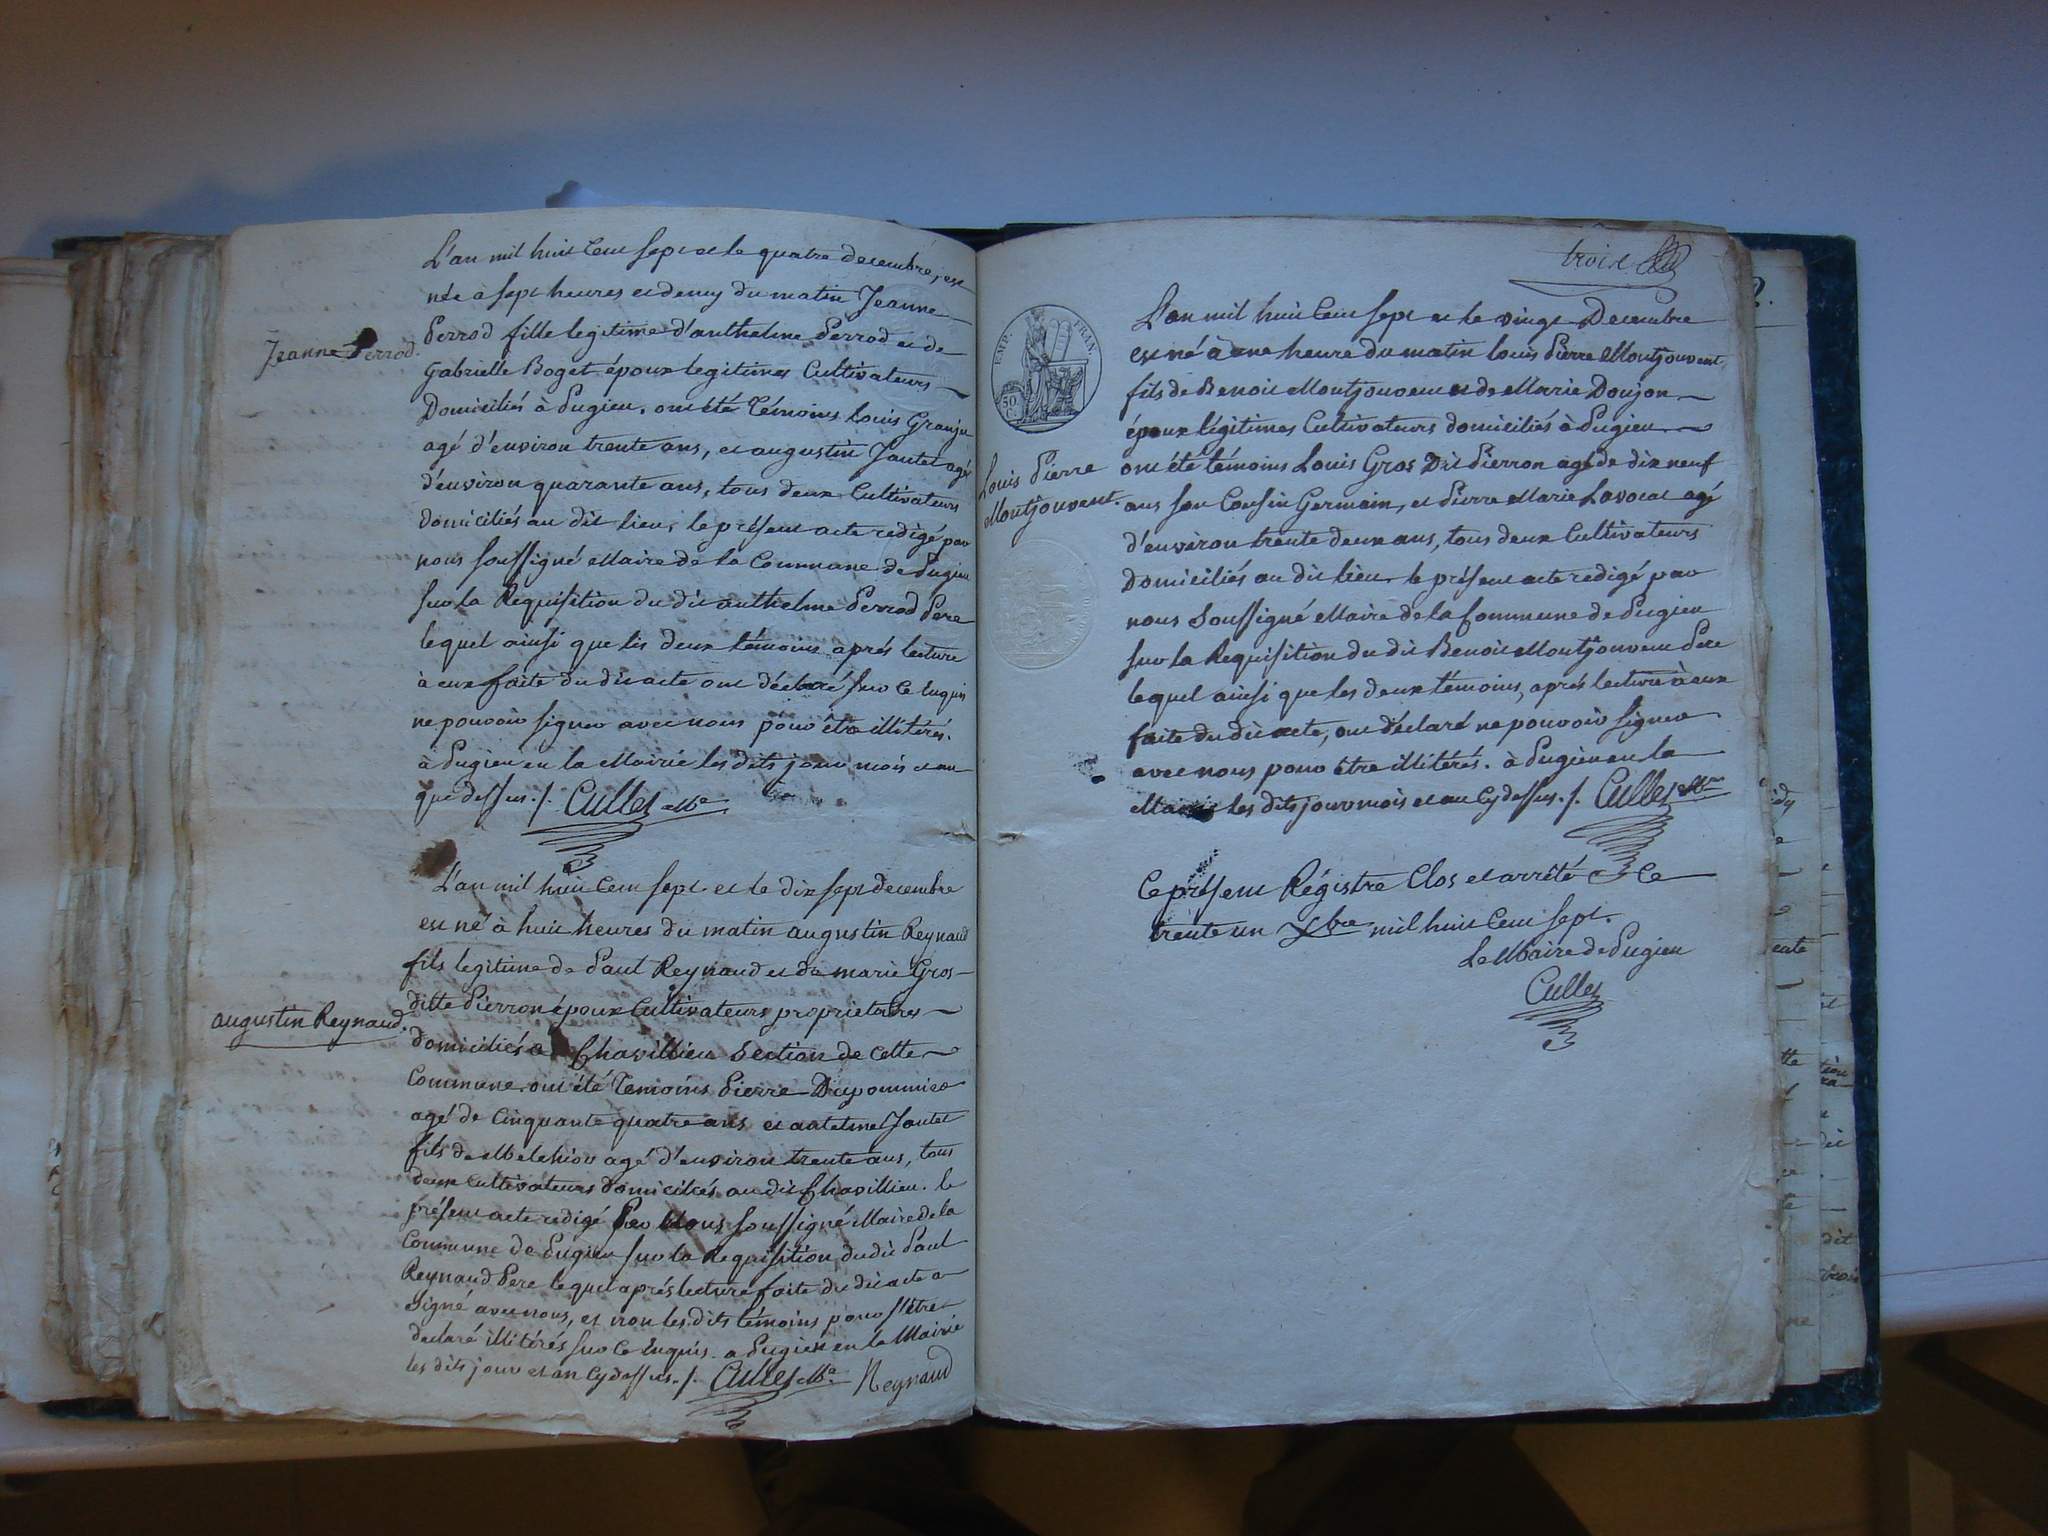 L'an mil huit Cent sept et le quatre decembre, est
née à sept heures et demy du matin Jeanne
Perrod fille legitime d'anthelme Perrod et de
Gabrielle Boget époux legitimes Cultivateurs
Domiciliés à Pugieu. ont été Témoins Louis Granju
agé d'environ trente ans, et augustin Jantet agé
d'environ quarante ans, tous deux Cultivateurs
domiciliés au dit lieu, le présent acte redigé par
nous soussigné Maire de la Commune de Pugieu
sur la Requisition du dit anthelme Perrod Pere
lequel ainsi que les deux témoins après lecture
à eux faite du dit acte ont déclaré sur ce Enquis
ne pouvoir signer avec nous pour être illitérés.
à Pugieu en la Mairie les dits jour mois et an
que dessus. /. Cullet M.e
Jeanne Perrod.
L'an mil huit Cent sept et le dix sept decembre
est né à huit heures du matin augustin Reynaud
fils legitime de Paul Reynaud et de marie Gros
ditte Pierron époux Cultivateurs proprietaires
domiciliés a Chavillieu Section de cette
Commune. ont été Temoins Pierre Dupommier
agé de Cinquante quatre ans et antelme Jantet
fils de Melchior agé d'environ trente ans, tous
deux Cultivateurs domiciliés au dit Chavillieu. le
présent acte redigé Par Nous soussigné Maire de la
Commune de Pugieu sur la Requisition du dit Paul
Reynaud Pere lequel aprés lecture faite du dit acte a
Signé avec nous, et non les dits témoins pour s'être
declaré illitérés sur ce Enquis. a Pugieu en la Mairie
les dits jour et an Cy dessus. /. Cullet M.e Reynaud
augustin Reynaud.
trois
EMP. FRAN.
50 C.
L'an mil huit Cent sept et le vingt Decembre
est né à une heure du matin Louis Pierre Montjouvent,
fils de Benoit Montjouvent et de Marie Doujon
époux légitimes Cultivateurs domiciliés à Pugieu
ont été témoins Louis Gros Dit Pierron agé de dix neuf
ans son Cousin Germain, et Pierre Marie Lavocat agé
d'environ trente deux ans, tous deux Cultivateurs
Domiciliés au dit lieu. le présent acte redigé par
nous Soussigné Maire de la Commune de Pugieu
sur la Requisition du dit Benoit Montjouvent Pere
lequel ainsi que les deux témoins, aprés lecture à eux
faite du dit acte, ont déclaré ne pouvoir signer
avec nous pour être illitérés. à Pugieu en la
Mairie les dits jour mois et an Cy dessus. /. Cullet M.re
Louis Pierre
Montjouvent.
Ce présent Régistre Clos et arrêté Ce
trente un Xbre mil huit Cent sept.
Le Maire de Pugieu
Cullet